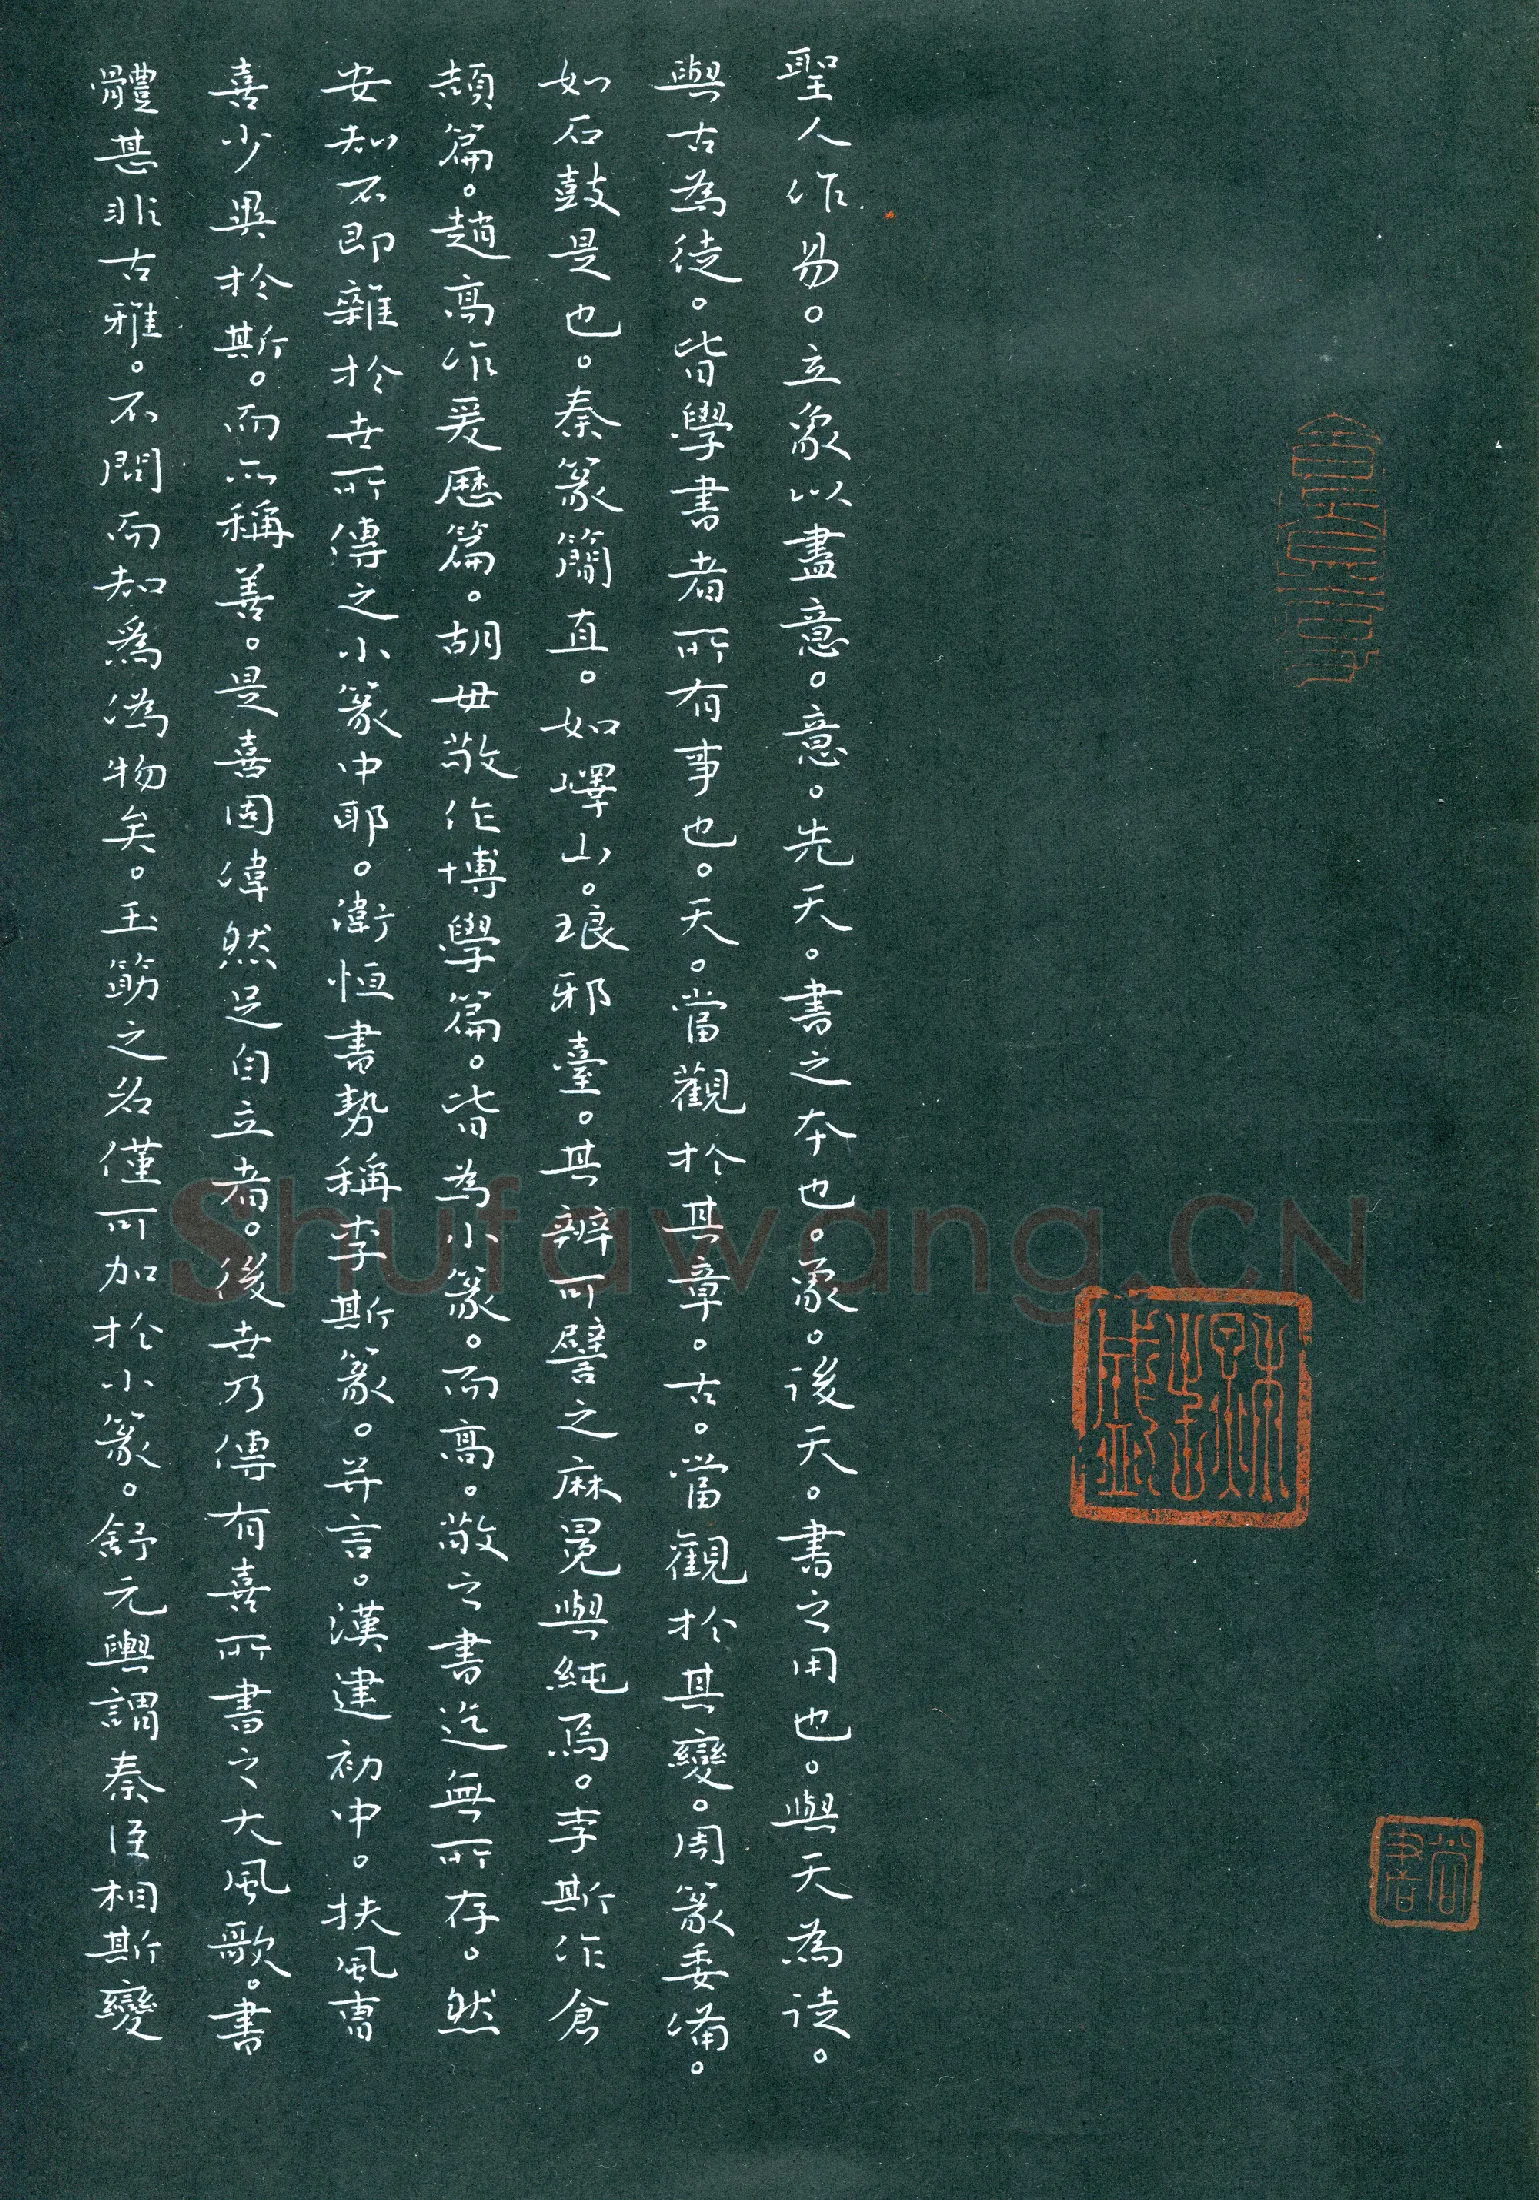 聖人作易。立象以盡意。意。先天。書之本也。象。後天。書之用也。與天為徒。
與古為徒。皆學書者所有事也。天。當觀於其章。古。當觀於其變。周篆委備。
如石鼓是也。秦篆簡直。如嶧山。琅邪臺。其辨可譬之麻冕與純焉。李斯作倉
頡篇。趙高作爰歷篇。胡毋敬作博學篇。皆為小篆。而高。敬之書迄無所存。然
安知不即雜於世所傳之小篆中耶。衛恒書勢稱李斯篆。并言。漢建初中。扶風曹
喜少異於斯。而亦稱善。是喜固偉然足自立者。後世乃傳有喜所書之大風歌。書
體甚非古雅。不問而知爲僞物矣。玉筯之名僅可加於小篆。舒元輿謂秦丞相斯變
Shufawang.CN